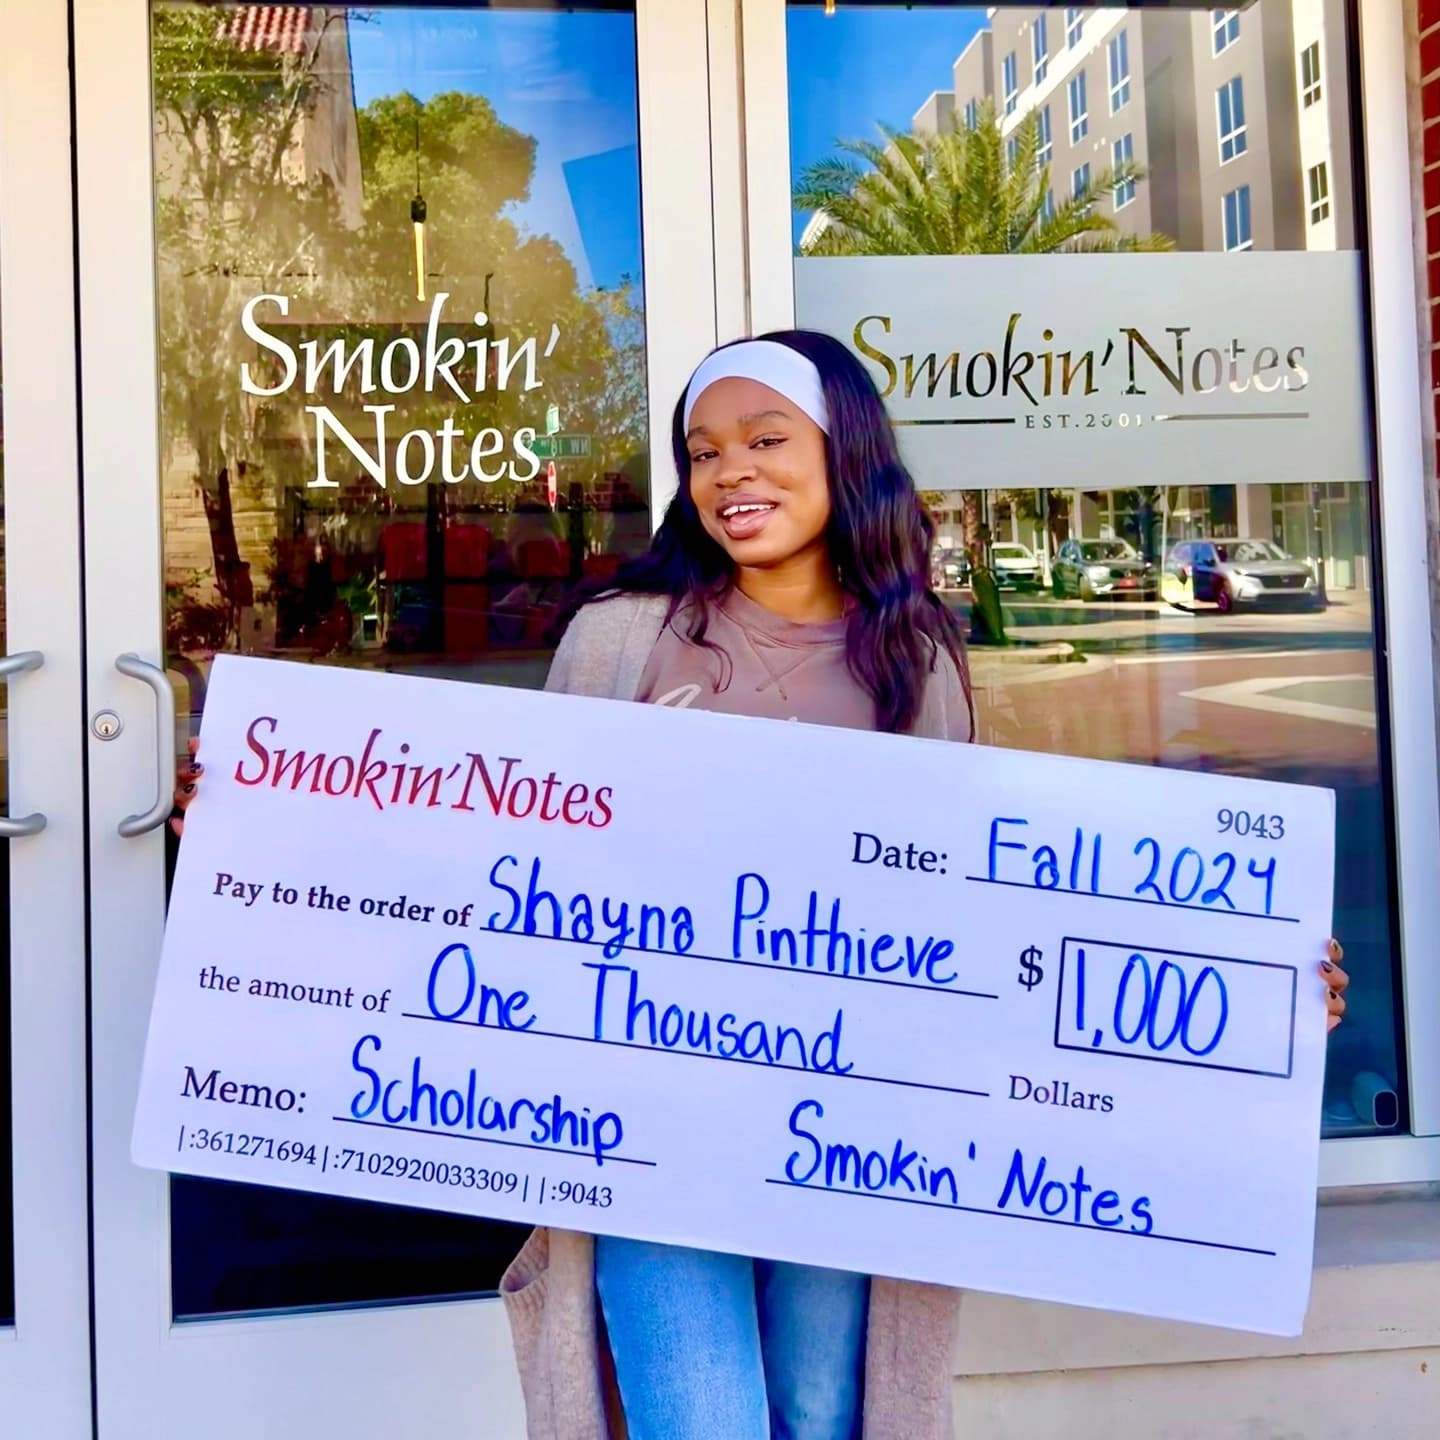 Smokin'
Notes
Smokin' Notes
EST. 2001
Smokin' Notes
9043
Date: Fall 2024
Pay to the order of Shayna Pinthieve $ 1,000
the amount of One Thousand Dollars
Memo: Scholarship Smokin' Notes
|:361271694|:7102920033309||:9043